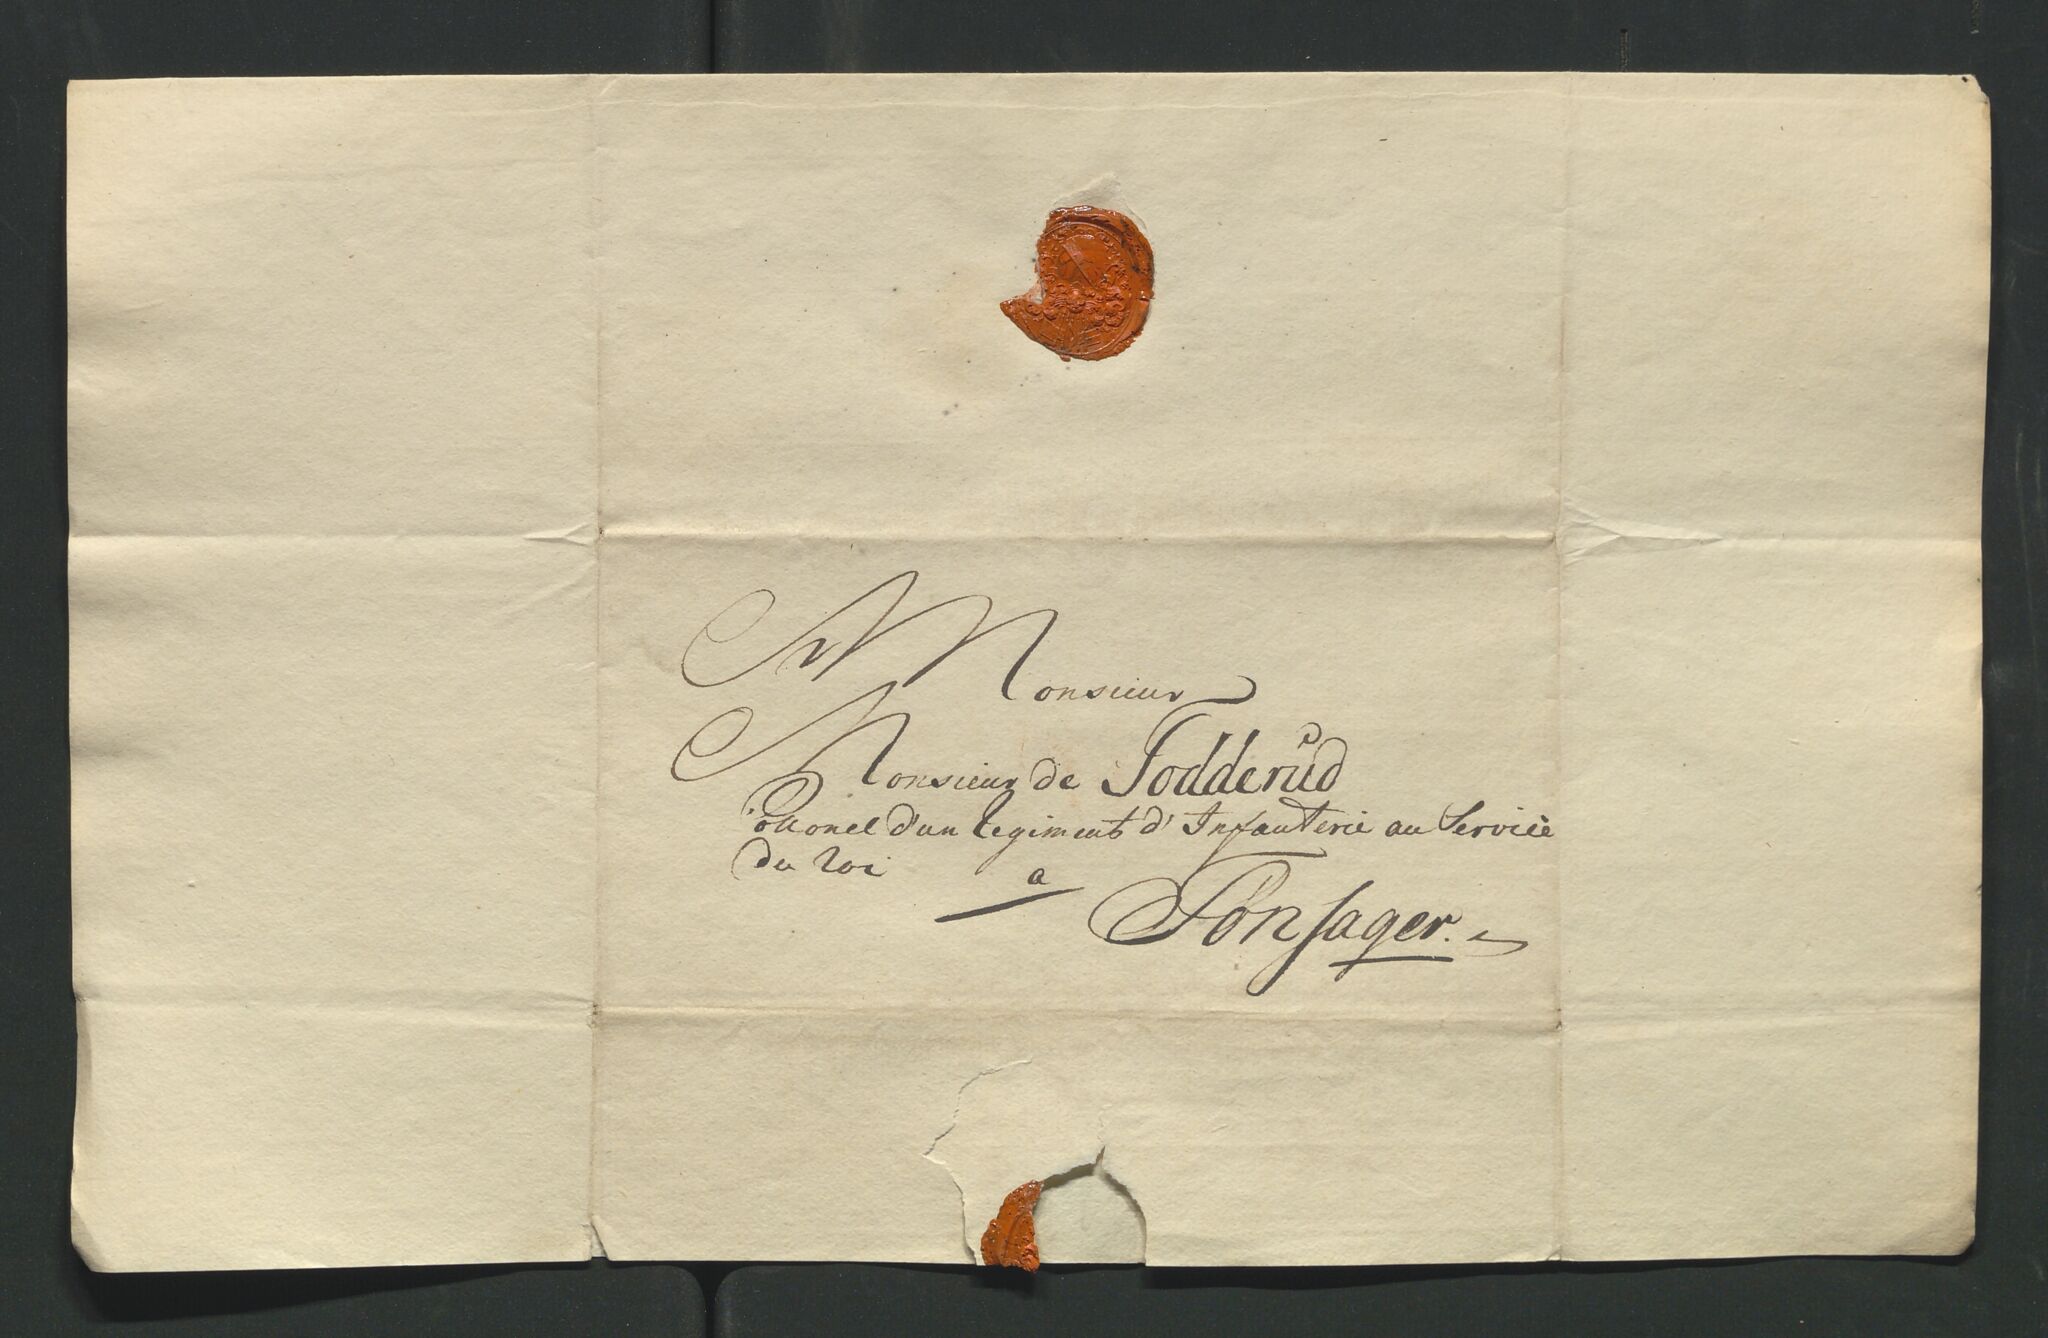 Monsieur
Monsieur de Todderud
Collonel d'un Regiment d'Infanterie au Service
du Roi a
Tønsager.